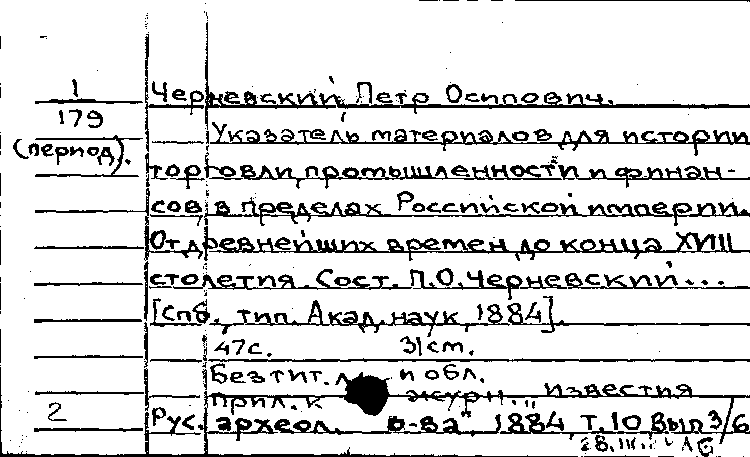 1
179
(период).
Черневский, Петр Осипович.
Указатель материалов для истории
торговли, промышленности и финан-
сов, в пределах Российской империи.
От древнейших времен до конца XVIII
столетия. Сост. П.О. Черневский...
[Спб., тип. Акад. наук, 1884].
47с. 31 см.
Без тит. л. и обл.
прил. к журн. „Известия
2
Рус. археол. о-ва", 1884, Т.10, Вып 3/6